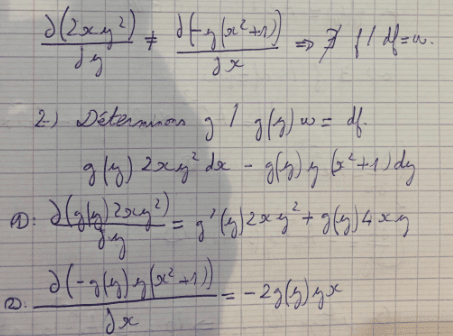 ∂(2xy²)/∂y ≠ ∂(-y(x²+1))/∂x ⇒ ∄ f / df = w.
2.) Déterminons g / g(y) w = df.
g(y) 2xy² dx - g(y) y (x²+1) dy
①: ∂(g(y) 2xy²)/∂y = g'(y) 2xy² + g(y) 4xy
②: ∂(-g(y) y(x²+1))/∂x = -2g(y) yx